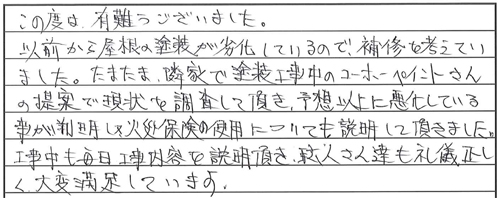 この度は、有難うございました。
以前から屋根の塗装が劣化しているので、補修を考えてい
ました。たまたま、隣家で塗装工事中のコーホーペイントさん
の提案で現状を調査して頂き、予想以上に悪化している
事が判明し火災保険の使用についても説明して頂きました。
工事中も毎日工事内容を説明頂き、職人さん達も礼儀正し
く、大変満足しています。